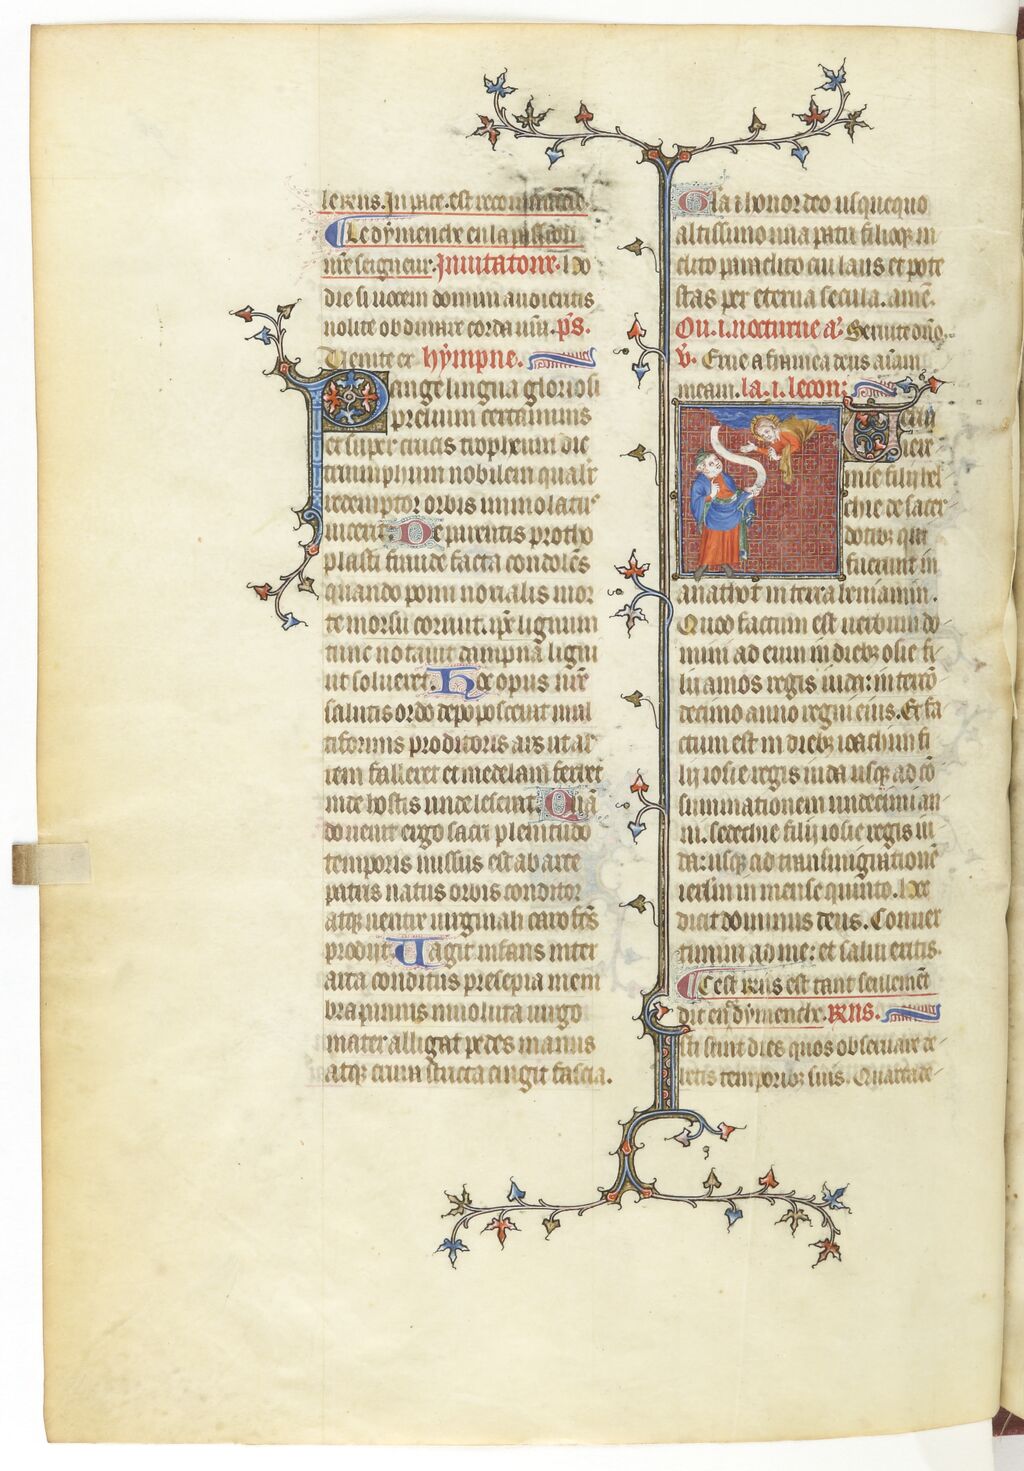 le rens. In pace. est recommencie.
Le dymenche en la passion
nr̄e seigneur. Inuitatoire. Ho
die si uocem domini audieritis
nolite obdurare corda ur̄a. p̄s.
Uenite et hympne.
Pange lingua gloriosi
prelium certaminis
et super crucis tropheum dic
triumphum nobilem qualit̄
redemptor orbis immolatus
uicerit. De parentis protho
plasti fraude facta condolēs
quando pomi noxialis mor
te morsu corruit. ip̄e lignum
tunc notauit dampna ligni
ut solueret. Hoc opus nr̄e
salutis ordo depoposcerat mul
tiformis proditoris ars ut ar
tem falleret et medelam ferret
inde hostis unde leserat. Quā
do uenit ergo sacri plenitudo
temporis missus est ab arce
patris natus orbis conditor
atqꝫ uentre uirginali caro fc̄s
prodijt. Uagit infans inter
arta conditus presepia mem
bra pannis inuoluta uirgo
mater alligat pedes manus
atqꝫ crura stricta cingit fascia.
Gl̄a ⁊ honor deo usquequo
altissimo una patri filioqꝫ in
clito paraclito cui laus et pote
stas per eterna secula. amē.
Ou .i. nocturne añ. Seruite dn̄o.
v̄. Erue a framea deus aīam
meam. la .i. lecon:
Uerba
iere
mie filij hel
chie de sacer
dotibꝫ qui
fuerunt in
anathot in terra beniamin.
Quod factum est uerbum do
mini ad eum in diebꝫ iosie fi
lij amos regis iuda: in tercō
decimo anno regni eius. Et fa
ctum est in diebꝫ ioachim fi
lij iosie regis iuda usqꝫ ad cō
summationem undecimi an
ni. sedechie filij iosie regis iu
da: usqꝫ ad transmigrationē
ierl̄m in mense quinto. Hec
dicit dominus deus. Conuer
timini ad me: et salui eritis.
Cest rens est tant seulemēt
dit en dymenche. RENS.
Isti sunt dies quos obseruare de
betis temporibꝫ suis. Quarta de